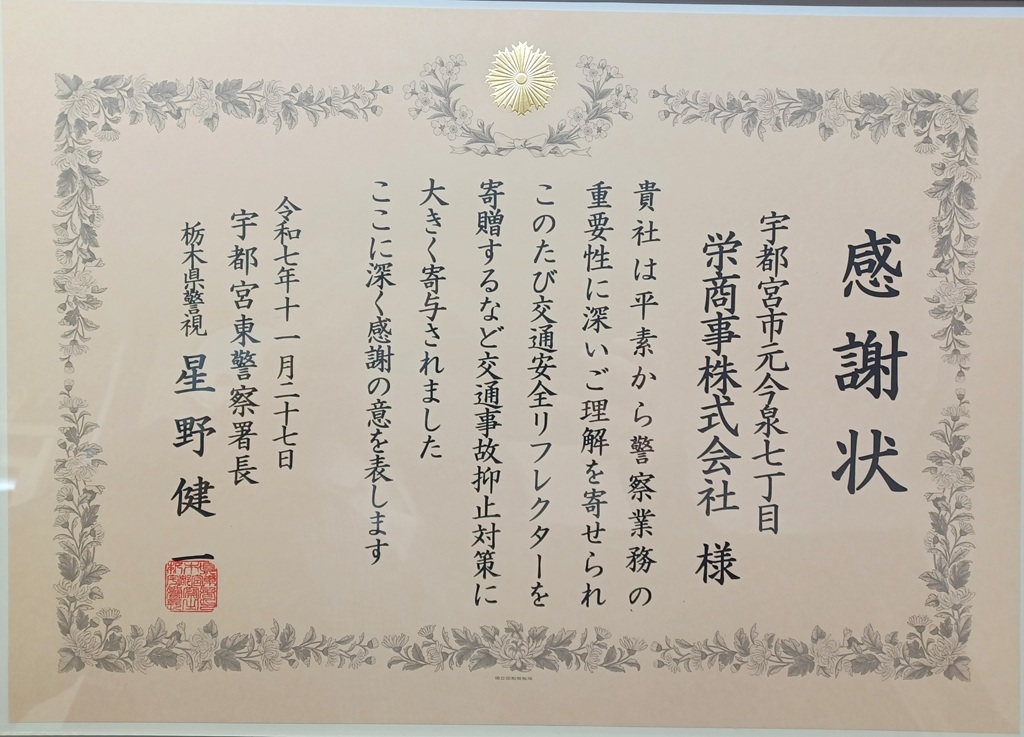 感謝状
宇都宮市元今泉七丁目
栄商事株式会社 様
貴社は平素から警察業務の
重要性に深いご理解を寄せられ
このたび交通安全リフレクターを
寄贈するなど交通事故抑止対策に
大きく寄与されました
ここに深く感謝の意を表します
令和七年十一月二十七日
宇都宮東警察署長
栃木県警視 星野健一